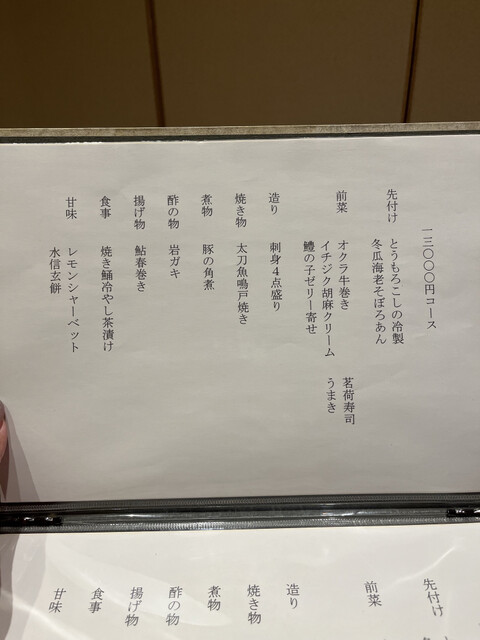 一三〇〇〇円コース
先付け とうもろこしの冷製
冬瓜海老そぼろあん
前菜 オクラ牛巻き 茗荷寿司
イチジク胡麻クリーム うまき
鱧の子ゼリー寄せ
造り 刺身4点盛り
焼き物 太刀魚鳴戸焼き
煮物 豚の角煮
酢の物 岩ガキ
揚げ物 鮎春巻き
食事 焼き鯒冷やし茶漬け
甘味 レモンシャーベット
水信玄餅
先付け
前菜
造り
焼き物
煮物
酢の物
揚げ物
食事
甘味